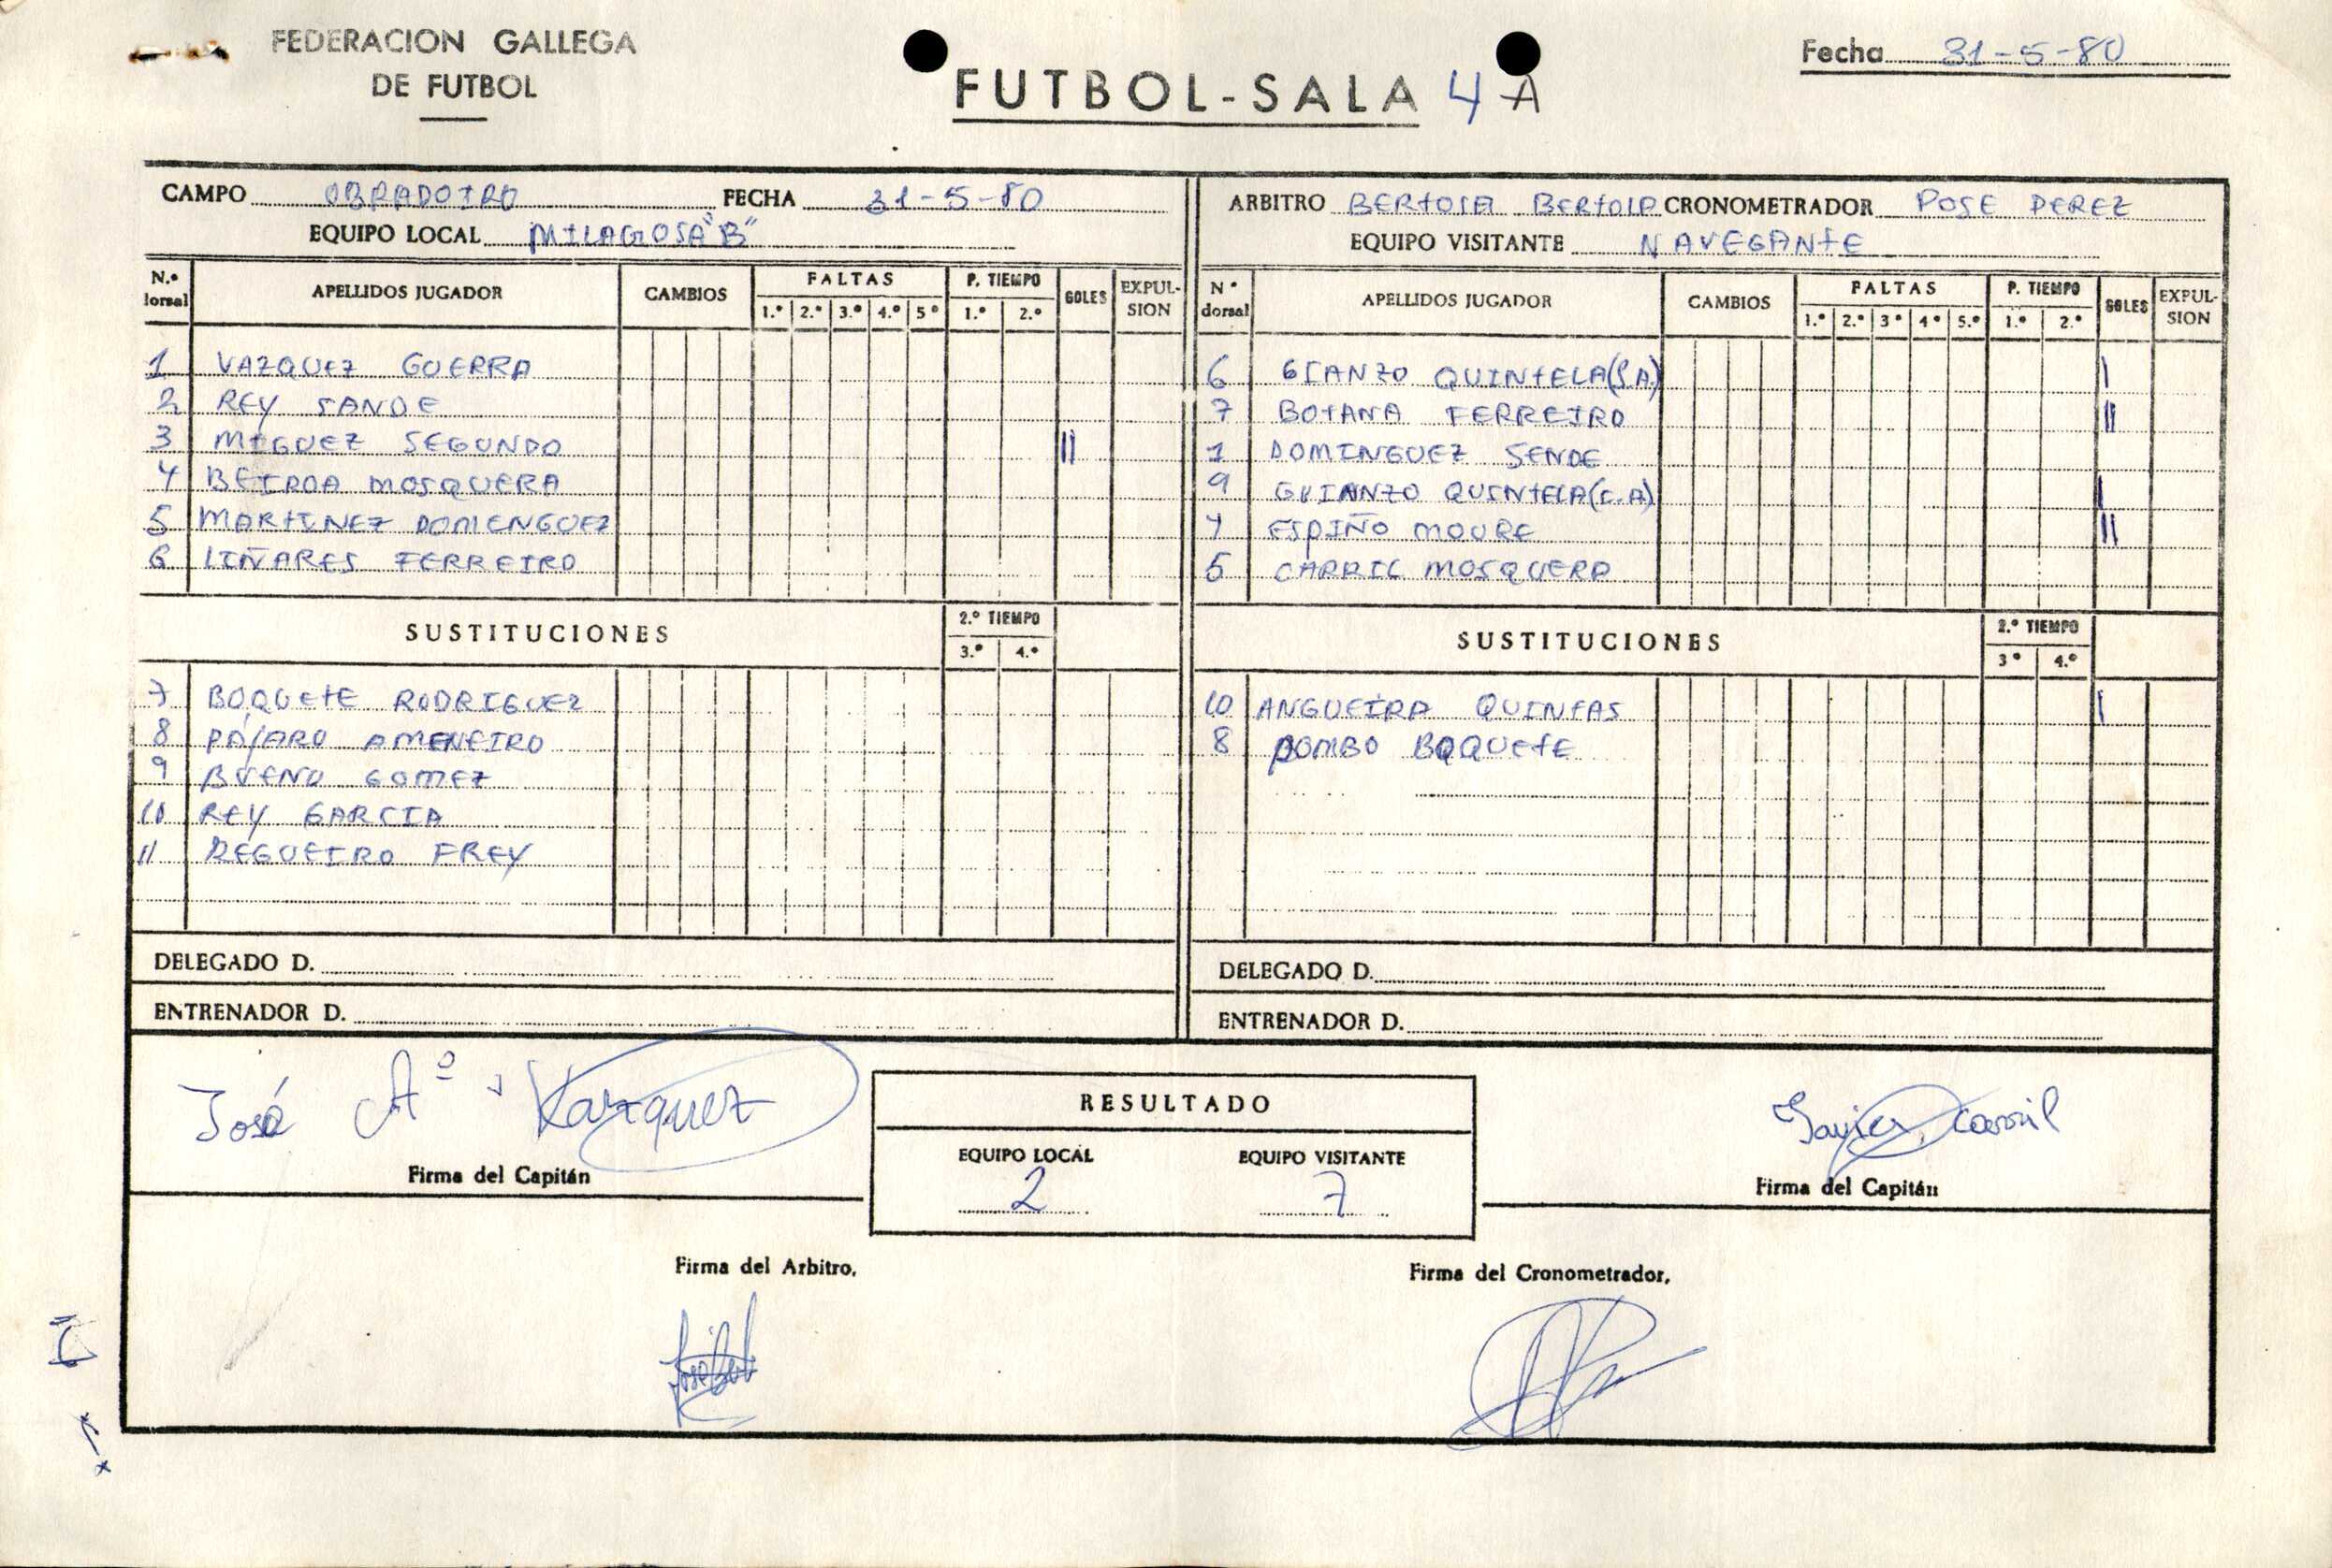 FEDERACION GALLEGA
DE FUTBOL
FUTBOL-SALA 4 A
Fecha 31-5-80
CAMPO OBRADOIRO FECHA 31-5-80
EQUIPO LOCAL MILAGROSA "B"
N.º dorsal APELLIDOS JUGADOR CAMBIOS FALTAS 1.º 2.º 3.º 4.º 5º P. TIEMPO 1.º 2.º GOLES EXPULSION
1 VAZQUEZ GUERRA
2 REY SANDE
3 MIGUEZ SEGUNDO II
4 BEIROA MOSQUERA
5 MARTINEZ DOMINGUEZ
6 LIÑARES FERREIRO
SUSTITUCIONES 2.º TIEMPO 3.º 4.º
7 BOQUETE RODRIGUEZ
8 PÁJARO AMENEIRO
9 BUENO GOMEZ
10 REY GARCIA
11 REGUEIRO FREY
DELEGADO D.
ENTRENADOR D.
ARBITRO BERTOLA BERTOLA CRONOMETRADOR POSE PEREZ
EQUIPO VISITANTE NAVEGANTE
Nº dorsal APELLIDOS JUGADOR CAMBIOS FALTAS 1.º 2.º 3º 4º 5.º P. TIEMPO 1.º 2.º GOLES EXPULSION
6 GIANZO QUINTELA (S.A.) I
7 BOTANA FERREIRO II
1 DOMINGUEZ SENDE
9 GUIANZO QUINTELA (C.A) I
4 ESPIÑO MOURE II
5 CARRIL MOSQUERA
SUSTITUCIONES 2.º TIEMPO 3º 4.º
10 ANGUEIRA QUINTAS I
8 POMBO BOQUETE
DELEGADO D.
ENTRENADOR D.
José Aº Vazquez
Firma del Capitán
RESULTADO
EQUIPO LOCAL EQUIPO VISITANTE
2 7
Javier Carril
Firma del Capitán
Firma del Arbitro,
Firma del Cronometrador,